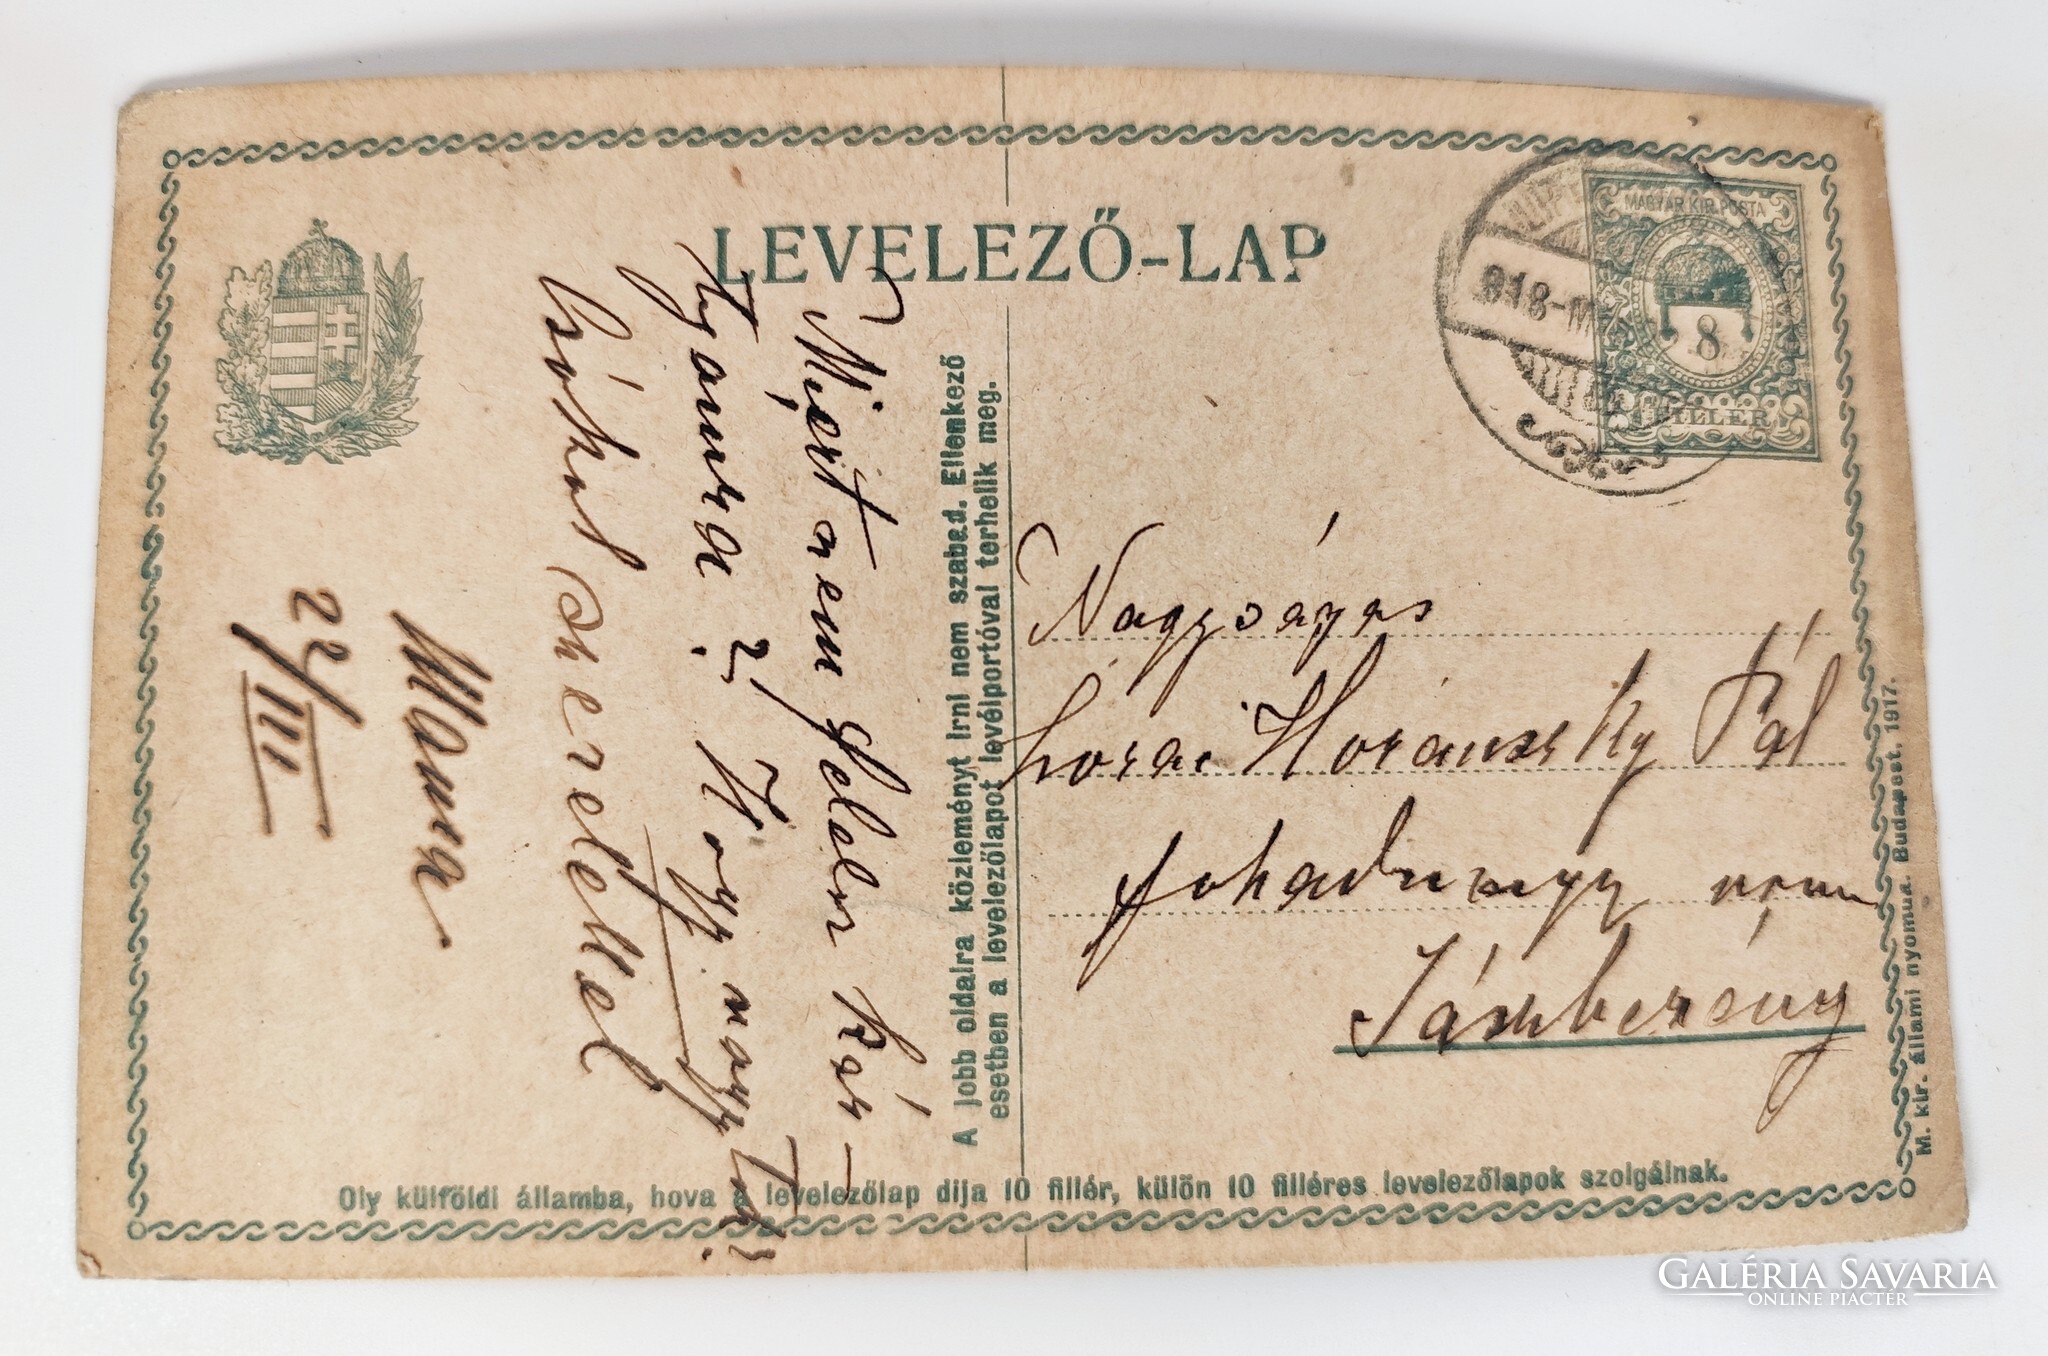 LEVELEZŐ-LAP
MAGYAR KIR. POSTA
8
FILLÉR
918-M
Miért nem felelsz kár-
tyámra? Hogy vagytok?
Csókol szeretettel
Mama
22/III
A jobb oldalra közleményt írni nem szabad. Ellenkező
esetben a levelezőlapot levélportóval terhelik meg.
Nagyságos
Horánszky Pál
főhadnagy
Jászberény
Oly külföldi államba, hova a levelezőlap díja 10 fillér, külön 10 filléres levelezőlapok szolgálnak.
M. kir. állami nyomda. Budapest, 1917.
GALÉRIA SAVARIA
ONLINE PIACTÉR